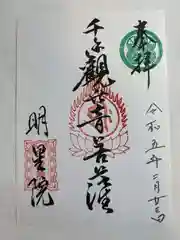 奉拝
令和五年二月廿三日
千手観世音菩薩
明星院